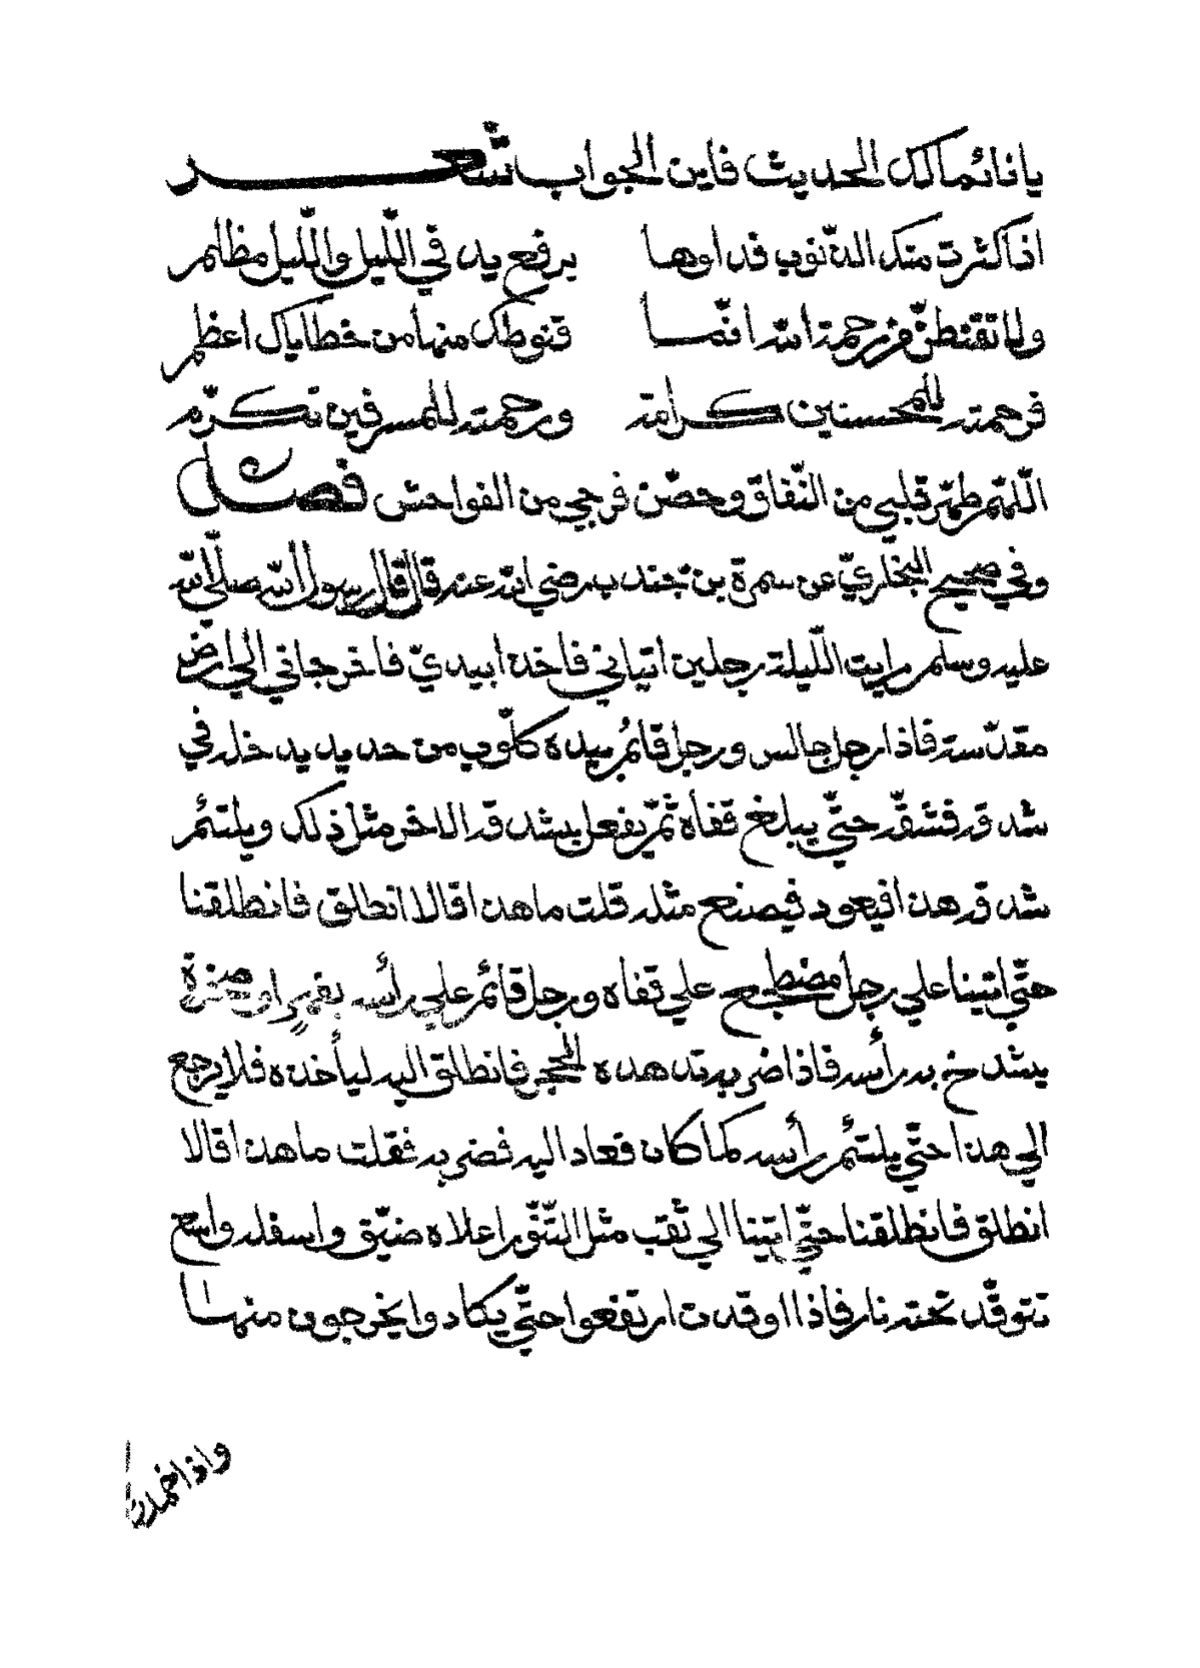 يا نائما لك الحديث فاين الجواب شعر
اذا كثرت منك الذنوب فداوها   برفع يد في اللّيل واللّيل مظلم
ولا تقنطنّ من رحمة الله انّما   قنوطك منها من خطاياك اعظم
فرحمته للمحسنين كرامة   ورحمته للمسرفين تكرّم
اللّهمّ طهّر قلبي من النّفاق وحصّن فرجي من الفواحش فصل
وفي صحيح البخاريّ عن سمرة بن جندب رضي الله عنه قال قال رسول الله صلّى الله
عليه وسلم رايت اللّيلة رجلين اتياني فاخذا بيديّ فاخرجاني الي ارض
مقدّسة فاذا رجل جالس ورجل قائمٌ بيده كلّوب من حديد يدخله في
شدقه فشقّه حتّي يبلغ قفاه ثمّ يفعل بشدقه الاخر مثل ذلك ويلتئم
شدقه هذا فيعود فيصنع مثله قلت ما هذا قالا انطلق فانطلقنا
حتّي اتينا علي رجل مضطجع علي قفاه ورجل قائم علي رأسه بفهرٍ او صخرة
يشدخ به رأسه فاذا ضربه تدهده الحجر فانطلق اليه ليأخذه فلا يرجع
الي هذا حتّي يلتئم رأسه كما كان فعاد اليه فضربه فقلت ما هذا قالا
انطلق فانطلقنا حتّي اتينا الي ثقب مثل التّنّور اعلاه ضيّق واسفله واسع
تتوقّد تحته نار فاذا اوقدت ارتفعوا حتّي يكادوا يخرجون منها
واذا خمدت